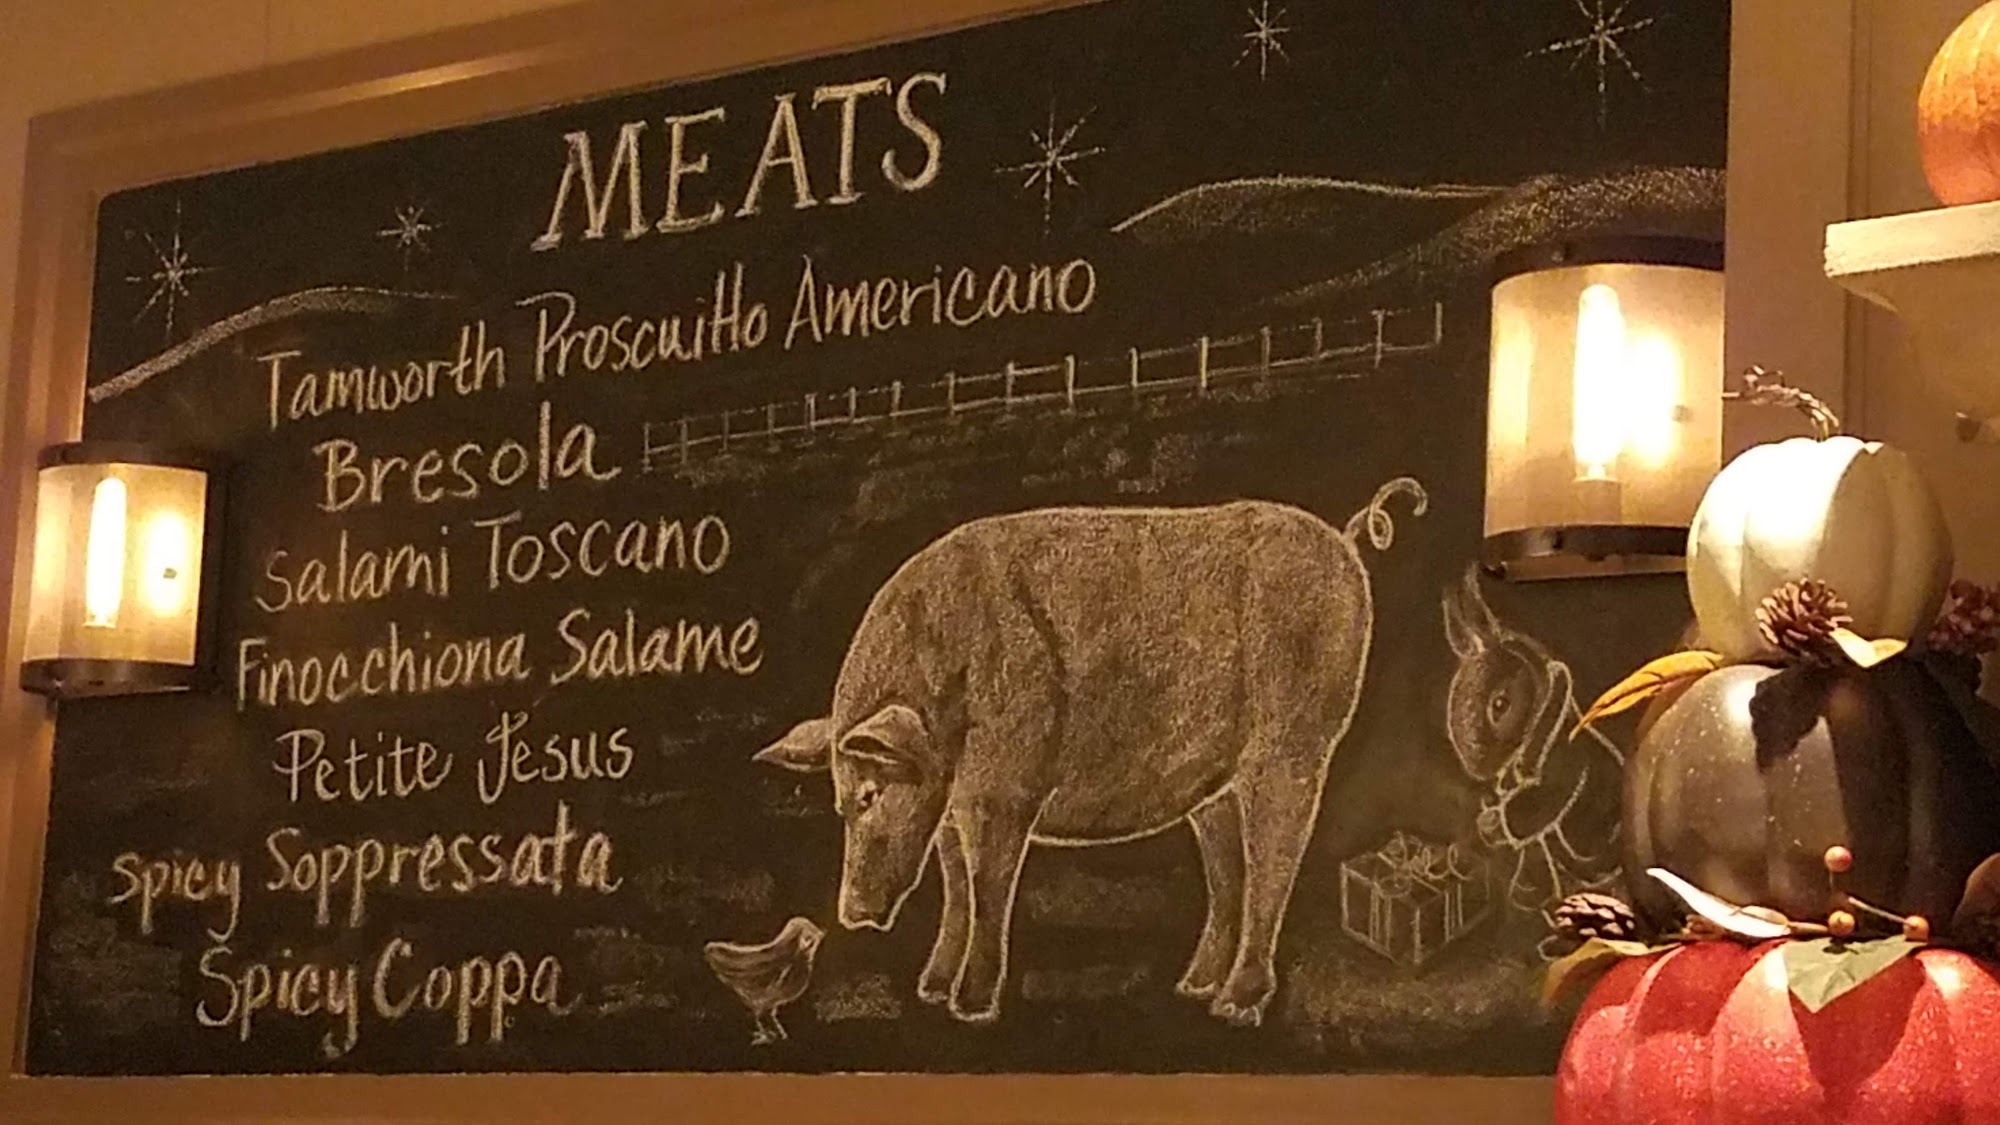 MEATS
Tamworth Proscuitto Americano
Bresola
Salami Toscano
Finocchiona Salame
Petite Jesus
Spicy Soppressata
Spicy Coppa